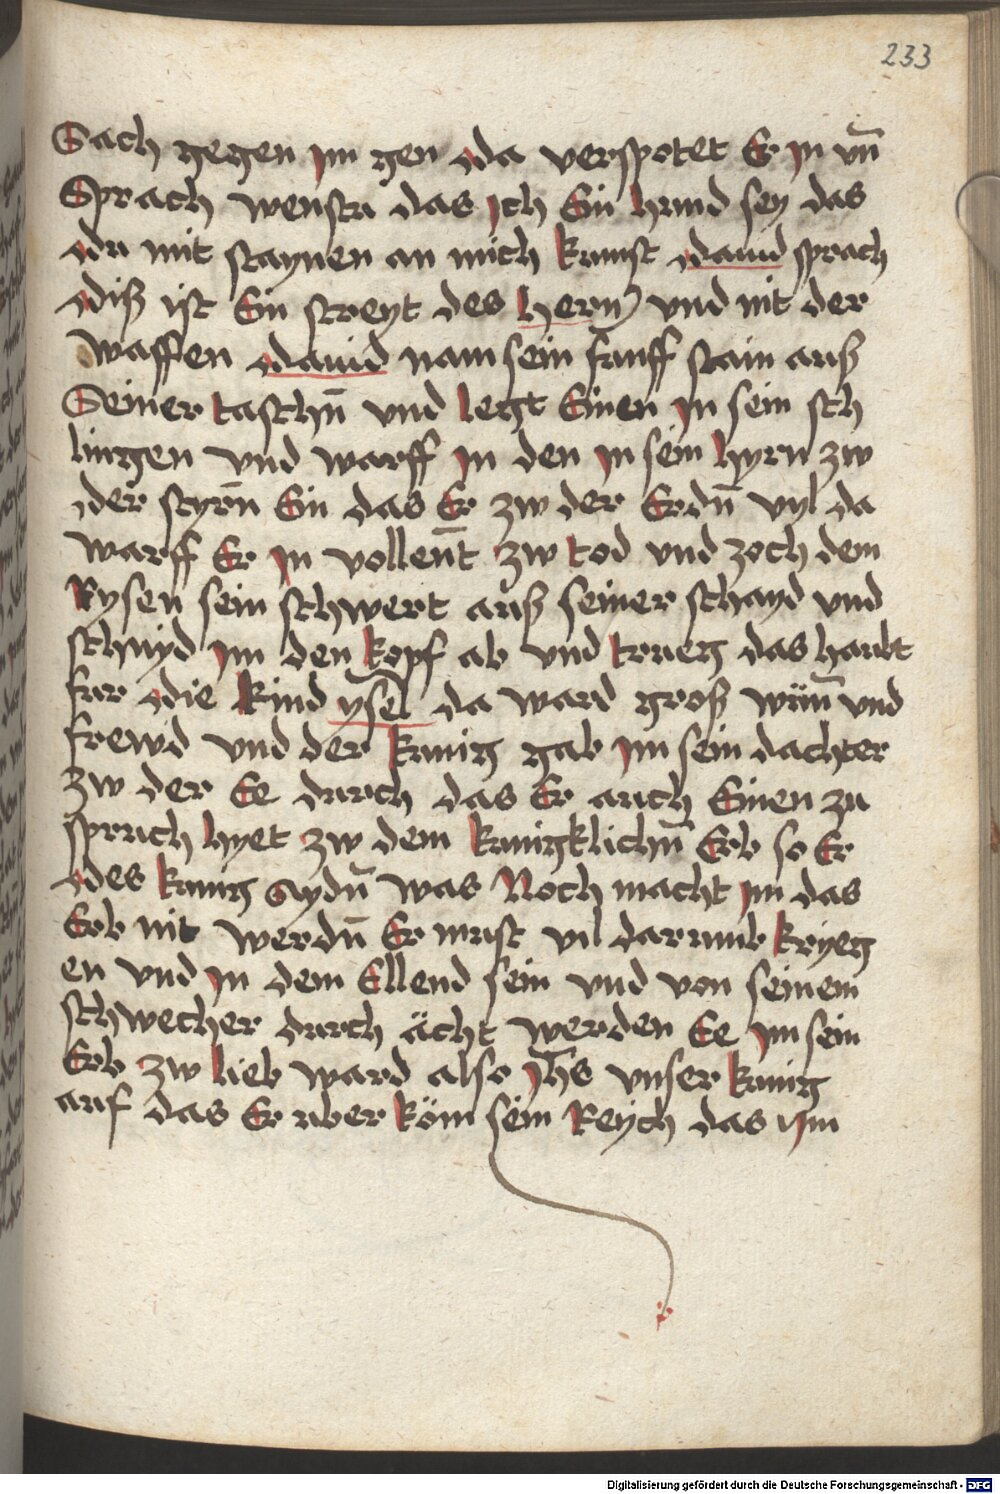 233
Sach gegen jm gen da verspotet Er jn vn̄
Sprach wenstu das jch Ein hund sey das
du mit staynen an mich kumst dauid sprach
diß ist Ein streyt des hern vnd nit der
waffen dauid nam sein funff stain auß
Seiner taschn̄ vnd legt Einen jn sein sch
lingen vnd warff jn den jn sein hyrn zw
der styrn̄ Ein das Er zw der Erdn̄ vyl da
warff Er jn vollen̄t zw tod vnd zoch dem
Rysen sein schwert auß seiner schayd vnd
schnyd jm den kopf ab vnd trueg das haubt
fur die kind ysel da ward groß wün̄ vnd
frewd vnd der kunig gab jm sein dachter
zw der Ee durch das Er auch Einen zu
spruch hyet zw dem kunigklichn̄ Erb so Er
des kunig Aydn̄ was Noch macht jm das
Erb nit werdn̄ Er must vil darumb kryeg
en vnd jn dem Ellend sein vnd von seinem
schwecher durch ächt werden Ee jm sein
Erb zw lieb ward also jh̄s vnser kunig
auf das Er uber köm sein Reych das ym
Digitalisierung gefördert durch die Deutsche Forschungsgemeinschaft - DFG